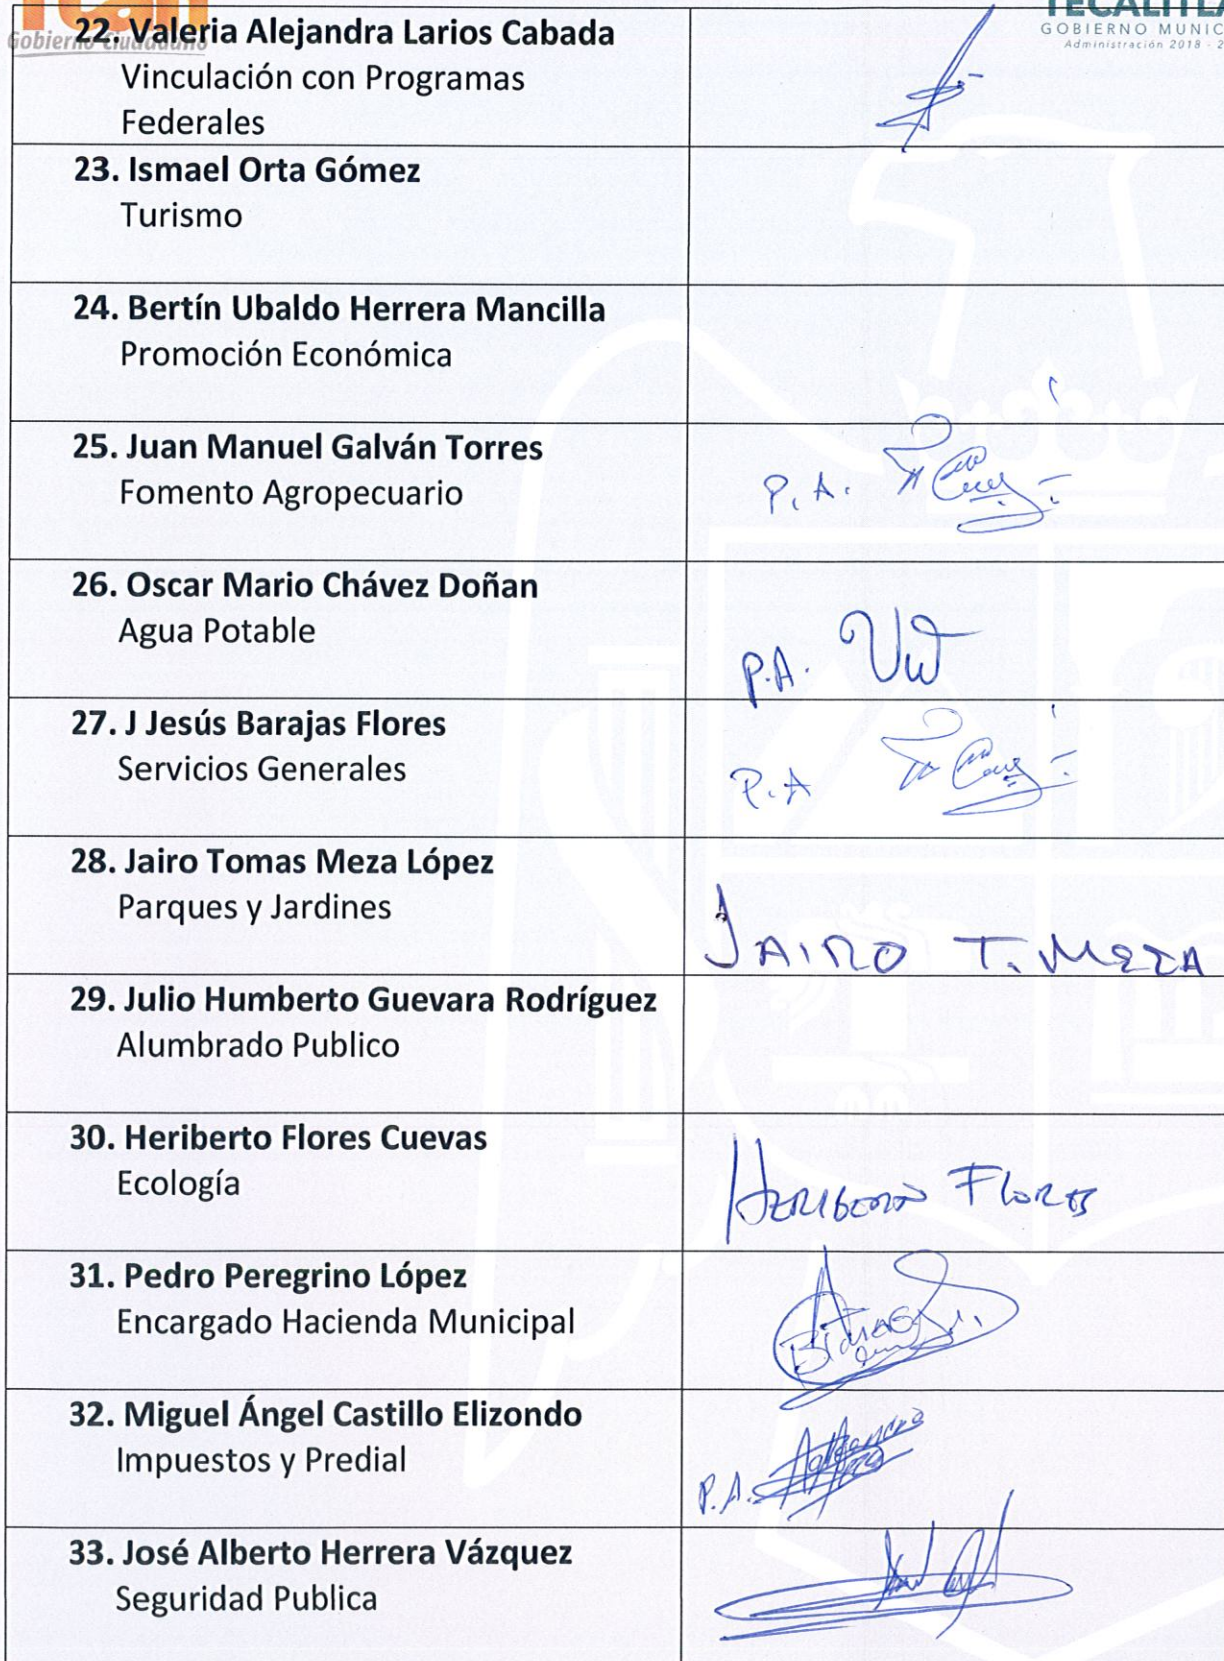 Gobierno Ciudadano
TECALITLÁ
GOBIERNO MUNIC
Administración 2018 - 2
22. Valeria Alejandra Larios Cabada
Vinculación con Programas
Federales
23. Ismael Orta Gómez
Turismo
24. Bertín Ubaldo Herrera Mancilla
Promoción Económica
25. Juan Manuel Galván Torres
Fomento Agropecuario
P. A.
26. Oscar Mario Chávez Doñan
Agua Potable
P.A.
27. J Jesús Barajas Flores
Servicios Generales
P. A
28. Jairo Tomas Meza López
Parques y Jardines
JAIRO T. MEZA
29. Julio Humberto Guevara Rodríguez
Alumbrado Publico
30. Heriberto Flores Cuevas
Ecología
HERIBERTO FLORES
31. Pedro Peregrino López
Encargado Hacienda Municipal
32. Miguel Ángel Castillo Elizondo
Impuestos y Predial
P. A.
33. José Alberto Herrera Vázquez
Seguridad Publica